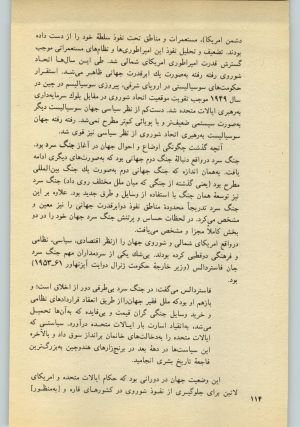 دشمن امریکا)، مستعمرات و مناطق تحت نفوذ سلطهٔ خود را از دست داده
بودند. تضعیف و تحلیل نفوذ این امپراطوری‌ها و نظام‌های مستعمراتی موجب
گسترش قدرت امپراطوری امریکای شمالی شد. طی این سال‌ها اتحاد
شوروی رفته رفته به‌صورت یك ابرقدرت جهانی ظاهر می‌شد. استقرار
حکومت‌های سوسیالیستی در اروپای شرقی، پیروزی سوسیالیسم در چین در
سال ۱۹۴۹ موجب تقویت موقعیت اتحاد شوروی در مقابل بلوك سرمایه‌داری
به‌رهبری ایالات متحده شد. دست‌کم از نظر سیاسی جهان سوسیالیست دیگر
به‌صورت سیستمی ضعیف‌تر و یا پوپولی کوتر مطرح نمی‌شد. رفته رفته جهان
سوسیالیست به‌رهبری اتحاد شوروی از نظر سیاسی نیز قوی شد.
آنچه گذشت چگونگی اوضاع و احوال جهان در آغاز جنگ سرد بود.
جنگ سرد درواقع دنبالهٔ جنگ دوم جهانی بود که به‌صورت‌های دیگری ادامه
یافت. به‌همان اندازه که جنگ جهانی دوم به‌صورت یك جنگ بین‌المللی
مطرح بود (یعنی گذشته از جنگی که میان ملل مختلف روی داد) جنگ سرد
نیز توسعهٔ همان جنگ با استفاده از وسایل و طرق جدید بود. علاوه بر این
جنگ سرد تدریجاً محدودهٔ مناطق نفوذ دوابرقدرت جهانی را نیز معین و
مشخص می‌کرد. در لحظات حساس و پرتنش جنگ سرد جهان خود را در دو
بخش کاملا مجزا و مشخص می‌یافت.
درواقع امریکای شمالی و شوروی جهان را ازنظر اقتصادی، سیاسی، نظامی
و فرهنگی دوقطبی کرده بودند. بی‌شك یکی از سردمداران مهم جنگ سرد
جان فاستردالس (وزیر خارجهٔ حکومت ژنرال دوایت آیزنهاور ۶۱–۱۹۵۳)
بود.
فاستردالس می‌گفت: در جنگ سرد بی‌طرفی دور از اخلاق است؛ و
بازهم او بودکه ملل فقیر جهان‌را‌از طریق انعقاد قراردادهای نظامی
و خرید وسایل جنگی گران قیمت و بی‌فایده که به‌آن‌ها تحمیل
می‌شد، به‌انقیاد اسارت بار ایالات متحده درآورد. سیاستی که
ایالات متحده را به‌دخالت‌های خانمان برانداز سوق داد و بالاخره
این سیاست‌ها در دههٔ بعد در برنج‌زارهای هندوچین به‌بزرگ‌ترین
فاجعهٔ تاریخ بشری انجامید.
این وضعیت جهان در دورانی بود که حکام ایالات متحده و امریکای
لاتین برای جلوگیری از نفوذ شوروی در کشورهای قاره و [به‌منظور]
۱۱۴